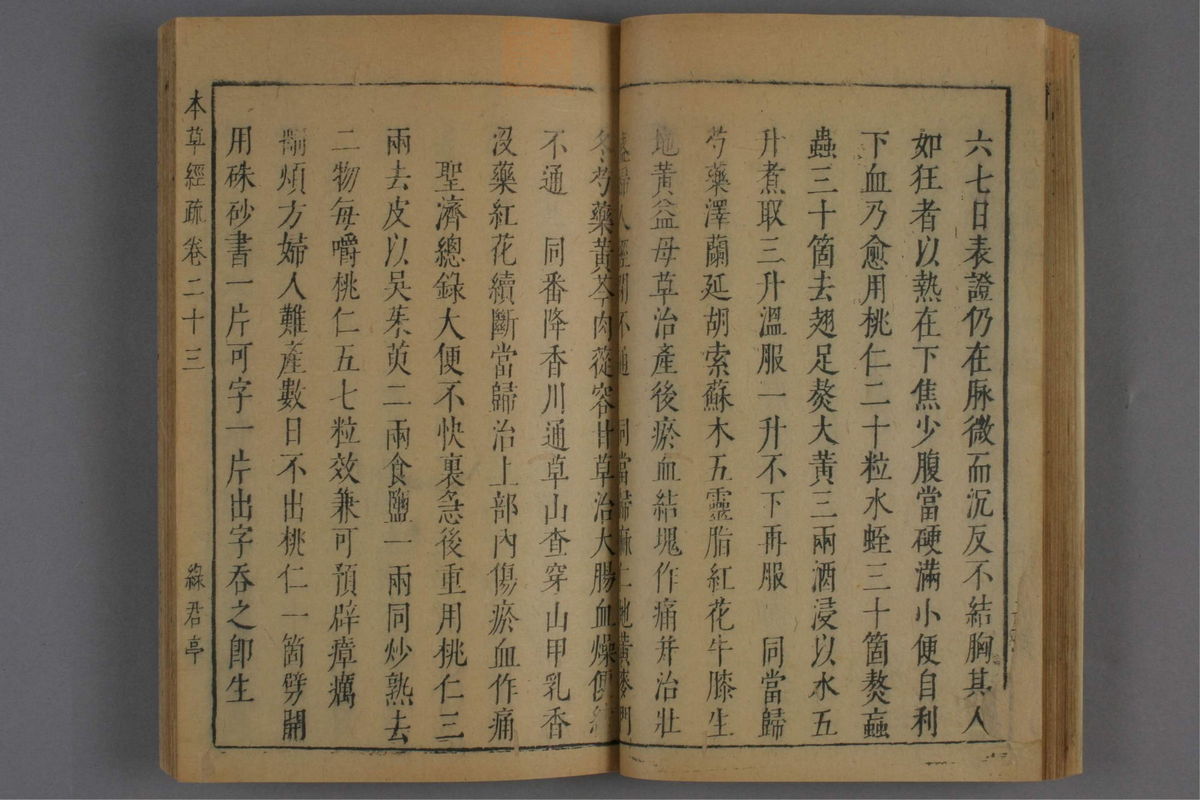 六七日表證仍在脉微而沉反不結胸其人
如狂者以熱在下焦少腹當硬滿小便自利
下血乃愈用桃仁二十粒水蛭三十箇熬蝱
蟲三十箇去翅足熬大黃三兩酒浸以水五
升煮取三升溫服一升不下再服　同當歸
芍藥澤蘭延胡索蘇木五靈脂紅花牛膝生
地黃益母草治產後瘀血結塊作痛并治壯
婦人經閉不通　同當歸麻仁地黃麥門
冬芍藥黃芩肉蓯容甘草治大腸血燥便
不通　同番降香川通草山查穿山甲乳香
沒藥紅花續斷當歸治上部內傷瘀血作痛
聖濟總錄大便不快裏急後重用桃仁三
兩去皮以吳茱萸二兩食鹽一兩同炒熟去
二物每嚼桃仁五七粒效兼可預辟瘴癘
煩方婦人難產數日不出桃仁一箇劈開
用硃砂書一片可字一片出字吞之卽生
本草經疏卷二十三
綠君亭